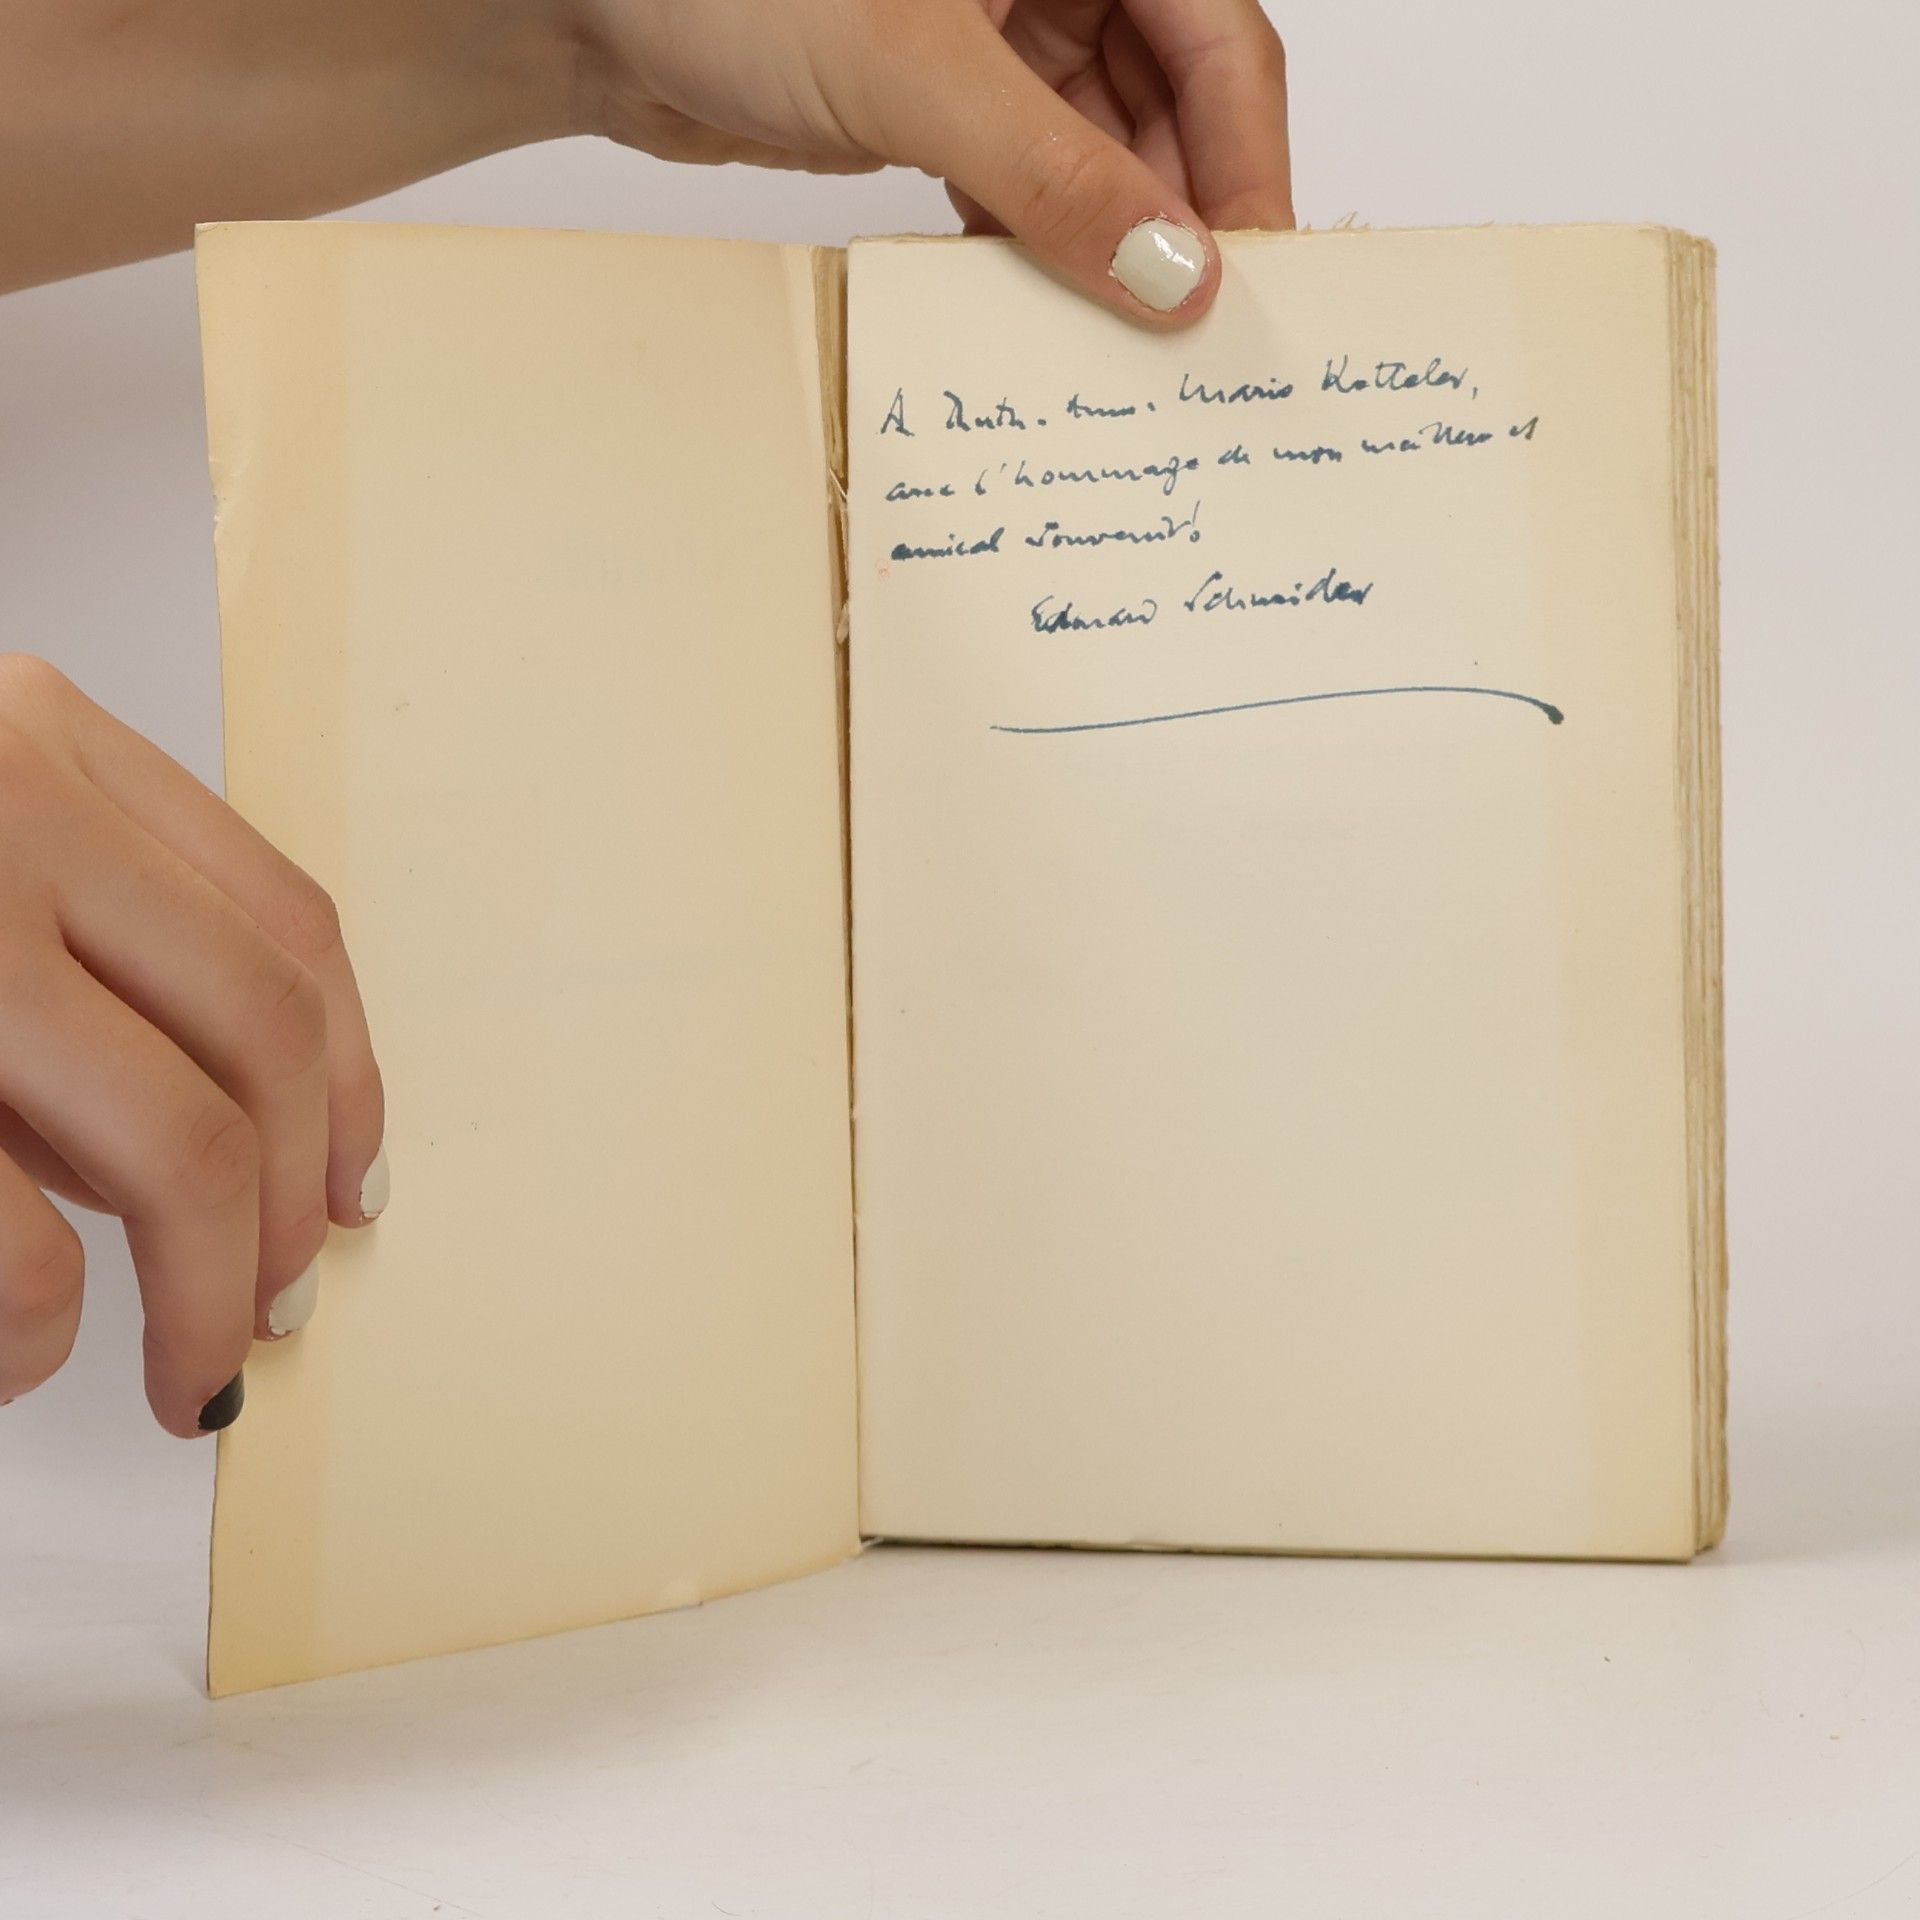 A Ruth-Anne-Marie Ketteler,
avec l'hommage de mon meilleur et
amical souvenir!
Edouard Schneider